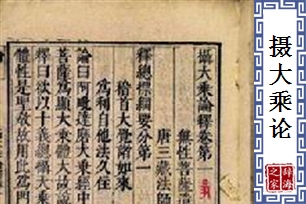 攝大乘論釋卷第
無性菩薩
唐三藏法師
釋總標綱要分第一
稽首大覺諸如來
為利自他法久住
論曰阿毗達磨大乘經中
菩薩為顯大乘體大故說
釋曰欲以十義總攝大乘
體性是聖教故用此為門
摄大乘论
辞海之家